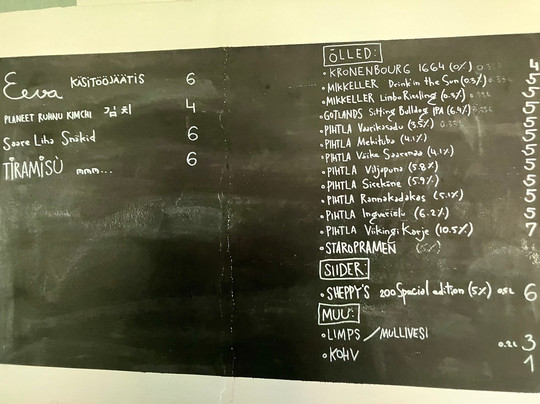 Eeva KÄSITÖÖJÄÄTIS 6
PLANEET RUHNU KIMCHI 김치 4
Saare Liha Snäkid 6
TIRAMISÙ mmm... 6
ÕLLED:
• KRONENBOURG 1664 (0%) 4
• MIKKELLER Drink'in the Sun (0.3%) 5
• MIKKELLER Limbo Riesling (0.3%) 5
• GOTLANDS Sitting Bulldog IPA (6.4%) 5
• PIHTLA Vaarikasadu (3.5%) 5
• PIHTLA Mekituba (4.1%) 5
• PIHTLA Väike Saaremaa (4.1%) 5
• PIHTLA Viljapuna (5.8%) 5
• PIHTLA Sisekäne (5.9%) 5
• PIHTLA Rannakadakas (5.1%) 5
• PIHTLA (6.2%) 5
• PIHTLA Viikingi Karje (10.5%) 7
• STAROPRAMEN (5%)
SIIDER:
• SHEPPY'S 200 Special edition (5%) 0.5L 6
MUU:
• LIMPS / MULLIVESI 0.2L 3
• KOHV 1